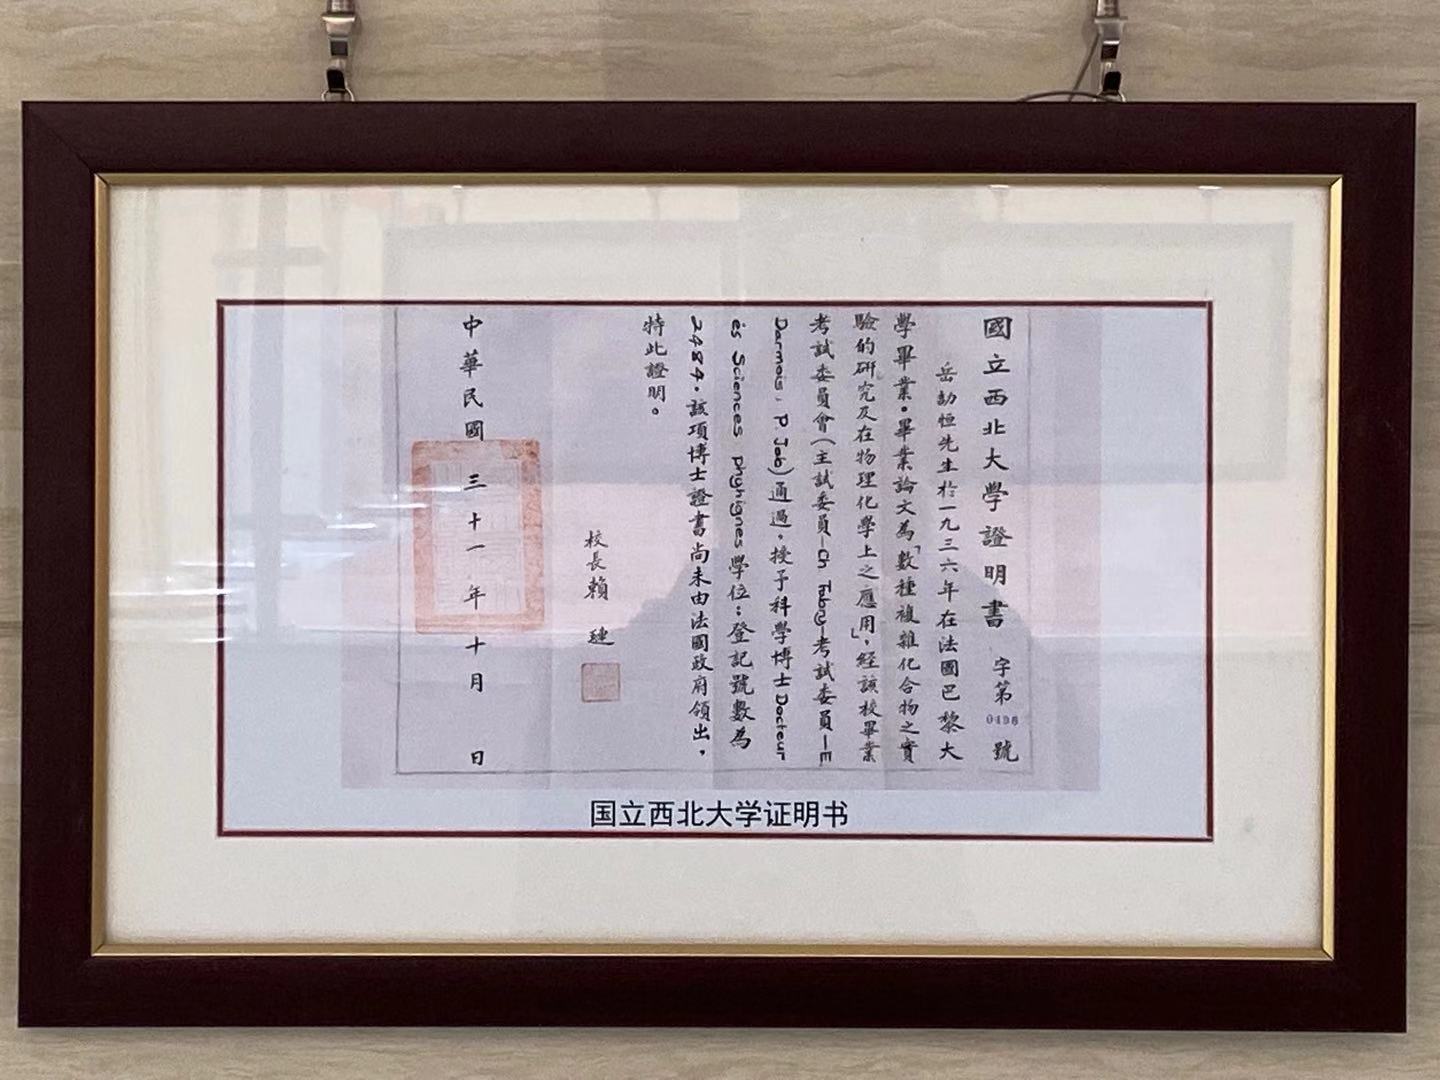 國立西北大學證明書 字第0496號
岳劼恒先生於一九三六年在法國巴黎大
學畢業。畢業論文為「數種複雜化合物之實
驗的研究及在物理化學上之應用」,經該校畢業
考試委員會(主試委員—Ch 考試委員—E
Darmois, P. Job)通過。授予科學博士Docteur
és Sciences phyhignes學位:登記號數為
2484.該項博士證書尚未由法國政府領出,
特此證明。
校長賴璉
中華民國三十一年十月 日
国立西北大学证明书